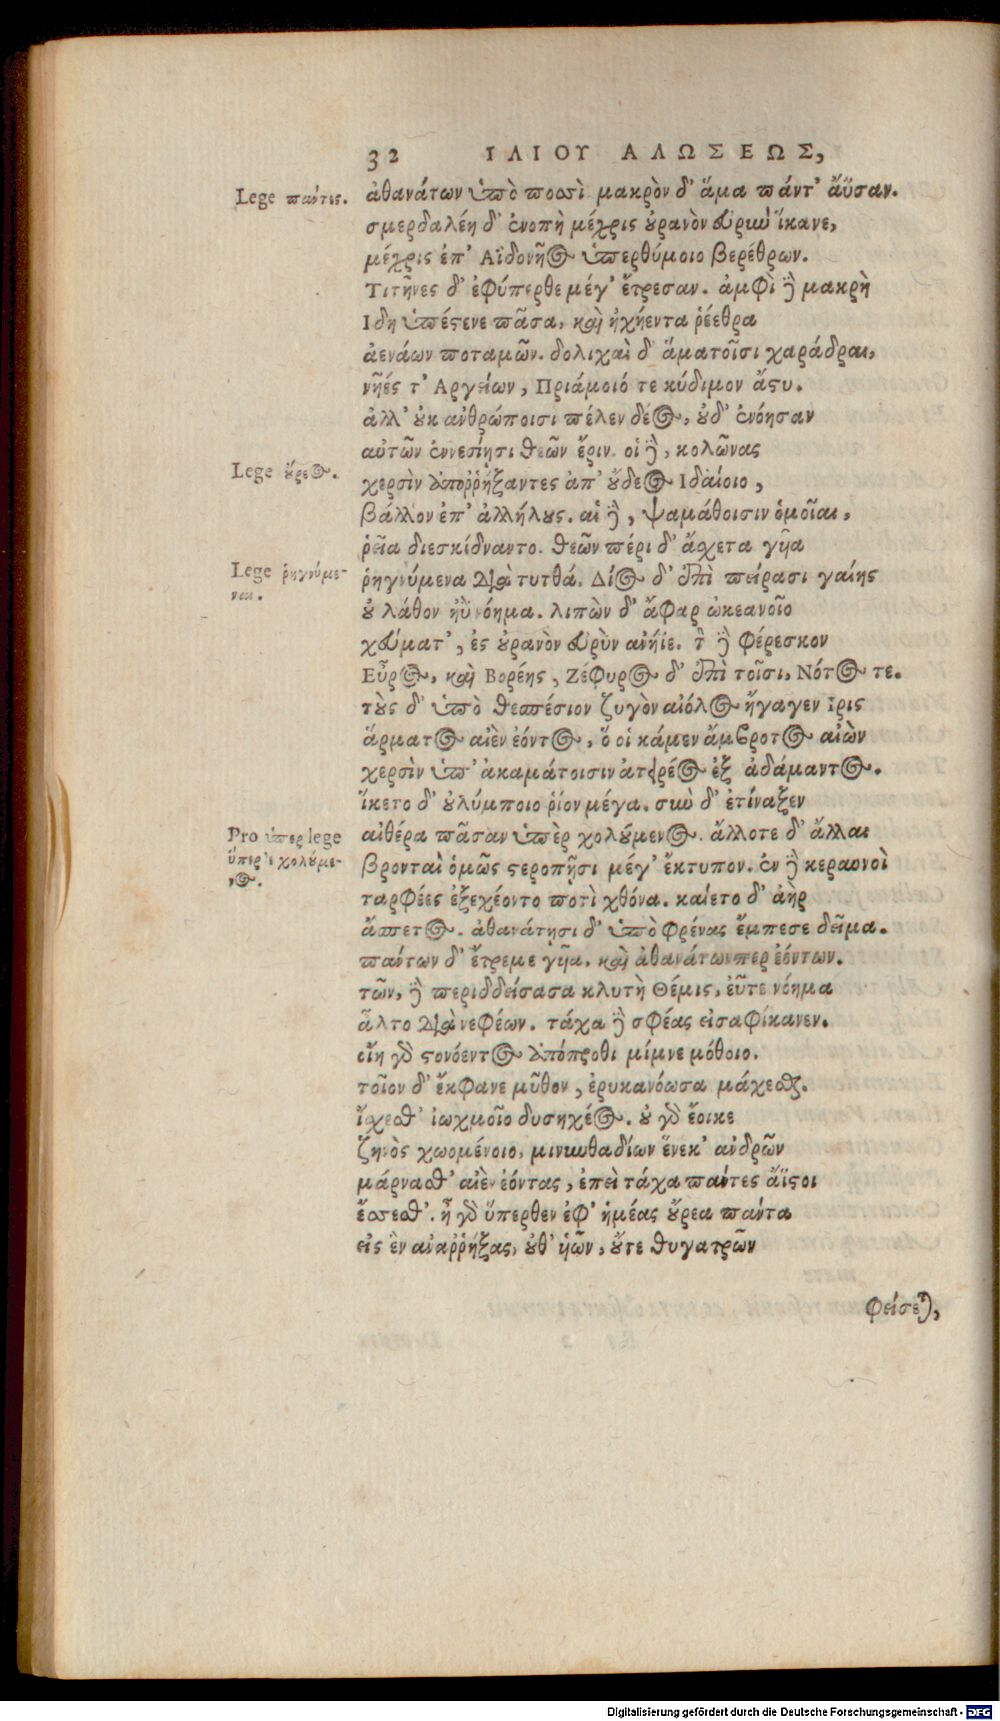 32 ΙΛΙΟΥ ΑΛΩΣΕΩΣ,
Lege πάντες.
ἀθανάτων ὑπὸ ποσσὶ μακρὸν δ' ἅμα πάντ' ἄϋσαν.
σμερδαλέη δ' ἐνοπὴ μέχρις οὐρανὸν εὐρὺν ἵκανε,
μέχρις ἐπ' Αϊδονῆος ὑπερθύμοιο βερέθρων.
Τιτῆνες δ' ἐφύπερθε μέγ' ἔτρεσαν. ἀμφὶ δὲ μακρὴ
Ιδη ὑπέστενε πᾶσα, καὶ ἠχήεντα ῥέεθρα
ἀενάων ποταμῶν. δολιχαὶ δ' ἅμα τοῖσι χαράδραι,
νῆές τ' Αργείων, Πριάμοιό τε κύδιμον ἄστυ.
ἀλλ' οὐκ ἀνθρώποισι πέλεν δέος, οὐδ' ἐνόησαν
αὐτῶν ἐννεσίῃσι θεῶν ἔριν. οἱ δὲ, κολῶνας
Lege οὔρεος.
χερσὶν ἀποῤῥήξαντες ἀπ' οὔδεος Ιδαίοιο,
βάλλον ἐπ' ἀλλήλους. αἱ δὲ, ψαμάθοισιν ὁμοῖαι,
ῥεῖα διεσκίδναντο. θεῶν πέρι δ' ἄσχετα γυῖα
Lege ῥηγνύμε-
ναι.
ῥηγνύμενα διὰ τυτθά. Διὸς δ' ἐπὶ πείρασι γαίης
οὐ λάθον ἠῢ νόημα. λιπὼν δ' ἄφαρ ὠκεανοῖο
χεύματ', ἐς οὐρανὸν εὐρὺν ἀνήϊε. τὸν δὲ φέρεσκον
Εὖρος, καὶ Βορέης, Ζέφυρος δ' ἐπὶ τοῖσι, Νότος τε.
τοὺς δ' ὑπὸ θεσπέσιον ζυγὸν αἰόλος ἤγαγεν Ιρις
ἅρματος αἰὲν ἐόντος, ὅ οἱ κάμεν ἄμβροτος αἰὼν
χερσὶν ὑπ' ἀκαμάτοισιν ἀτειρέος ἐξ ἀδάμαντος.
ἵκετο δ' οὐλύμποιο ῥίον μέγα. σὺν δ' ἐτίναξεν
Pro ὑπερ lege
ὕπερθε χολούμε-
νος.
αἰθέρα πᾶσαν ὑπὲρ χολούμενος. ἄλλοτε δ' ἄλλαι
βρονταὶ ὁμῶς στεροπῇσι μέγ' ἔκτυπον. ἐν δὲ κεραυνοὶ
ταρφέες ἐξεχέοντο ποτὶ χθόνα. καίετο δ' ἀὴρ
ἄσπετος. ἀθανάτῃσι δ' ὑπὸ φρένας ἔμπεσε δεῖμα.
πάντων δ' ἔτρεμε γυῖα, καὶ ἀθανάτων περ ἐόντων.
τῶν, δὲ περιδδείσασα κλυτὴ Θέμις, εὖτε νόημα
ἆλτο διὰ νεφέων. τάχα δὲ σφέας εἰσαφίκανεν.
οἴη γὰρ στονόεντος ἀπόπροθι μίμνε μόθοιο.
τοῖον δ' ἔκφανε μῦθον, ἐρυκανόωσα μάχεσθαι.
ἴσχεσθ' ἰωχμοῖο δυσηχέος. οὐ γὰρ ἔοικε
ζηνὸς χωομένοιο, μινυνθαδίων ἕνεκ' ἀνδρῶν
μάρνασθ' αἰὲν ἐόντας, ἐπεὶ τάχα πάντες ἄϊστοι
ἔσσεσθ'. ἦ γὰρ ὕπερθεν ἐφ' ἡμέας οὔρεα πάντα
εἰς ἓν ἀναῤῥήξας, οὔθ' υἱῶν, οὔτε θυγατρῶν
φείσεται,
Digitalisierung gefördert durch die Deutsche Forschungsgemeinschaft - DFG